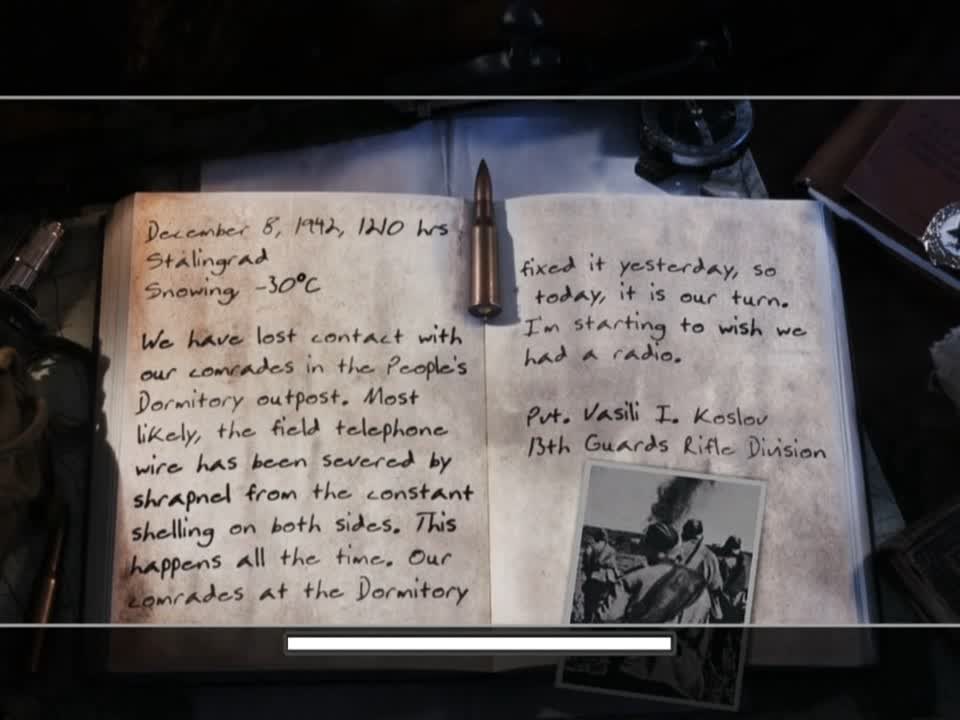 December 8, 1942, 1210 hrs
Stalingrad
Snowing -30°C
We have lost contact with
our comrades in the People's
Dormitory outpost. Most
likely, the field telephone
wire has been severed by
shrapnel from the constant
shelling on both sides. This
happens all the time. Our
comrades at the Dormitory
fixed it yesterday, so
today, it is our turn.
I'm starting to wish we
had a radio.
Pvt. Vasili I. Koslov
13th Guards Rifle Division